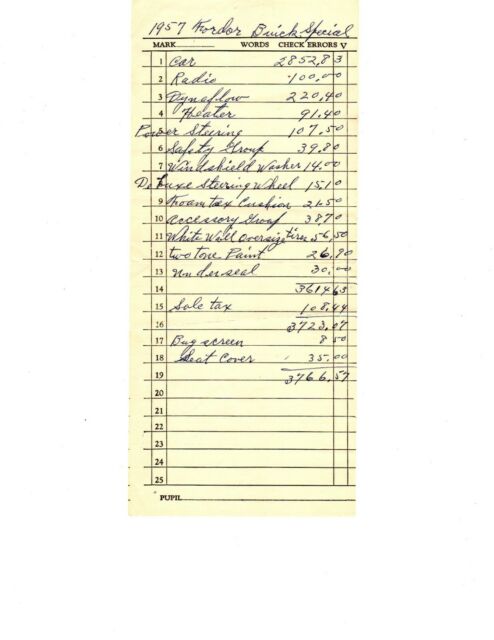 1957 Fordor Buick Special
MARK WORDS CHECK ERRORS √
1 Car 2852,83
2 Radio 100,00
3 Dynaflow 220,40
4 Heater 91.40
5 Power Steering 107.50
6 Safety Group 39.80
7 Windshield Washer 14.00
8 De Luxe Steering Wheel 15.10
9 Foamtax Cushion 21.50
10 Accessory Group 38,70
11 White Wall Oversize tires 56,50
12 two tone Paint 26,90
13 underseal 30,00
14 3614 63
15 Sale tax 108,44
16 3723,07
17 Bug screen 8 50
18 Seat Cover 35.00
19 3766,57
20
21
22
23
24
25
PUPIL